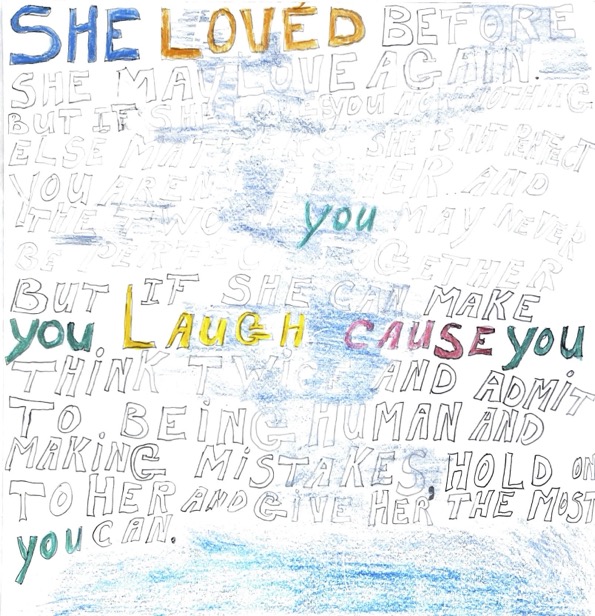 SHE LOVED BEFORE
SHE MAY LOVE AGAIN.
BUT IF SHE LOVES YOU NOW NOTHING
ELSE MATTERS SHE IS NOT PERFECT
YOU AREN'T EITHER AND
THE TWO OF you MAY NEVER
BE PERFECT TOGETHER
BUT IF SHE CAN MAKE
you LAUGH CAUSE you
THINK TWICE AND ADMIT
TO BEING HUMAN AND
MAKING MISTAKES, HOLD ON
TO HER AND GIVE HER THE MOST
you CAN.